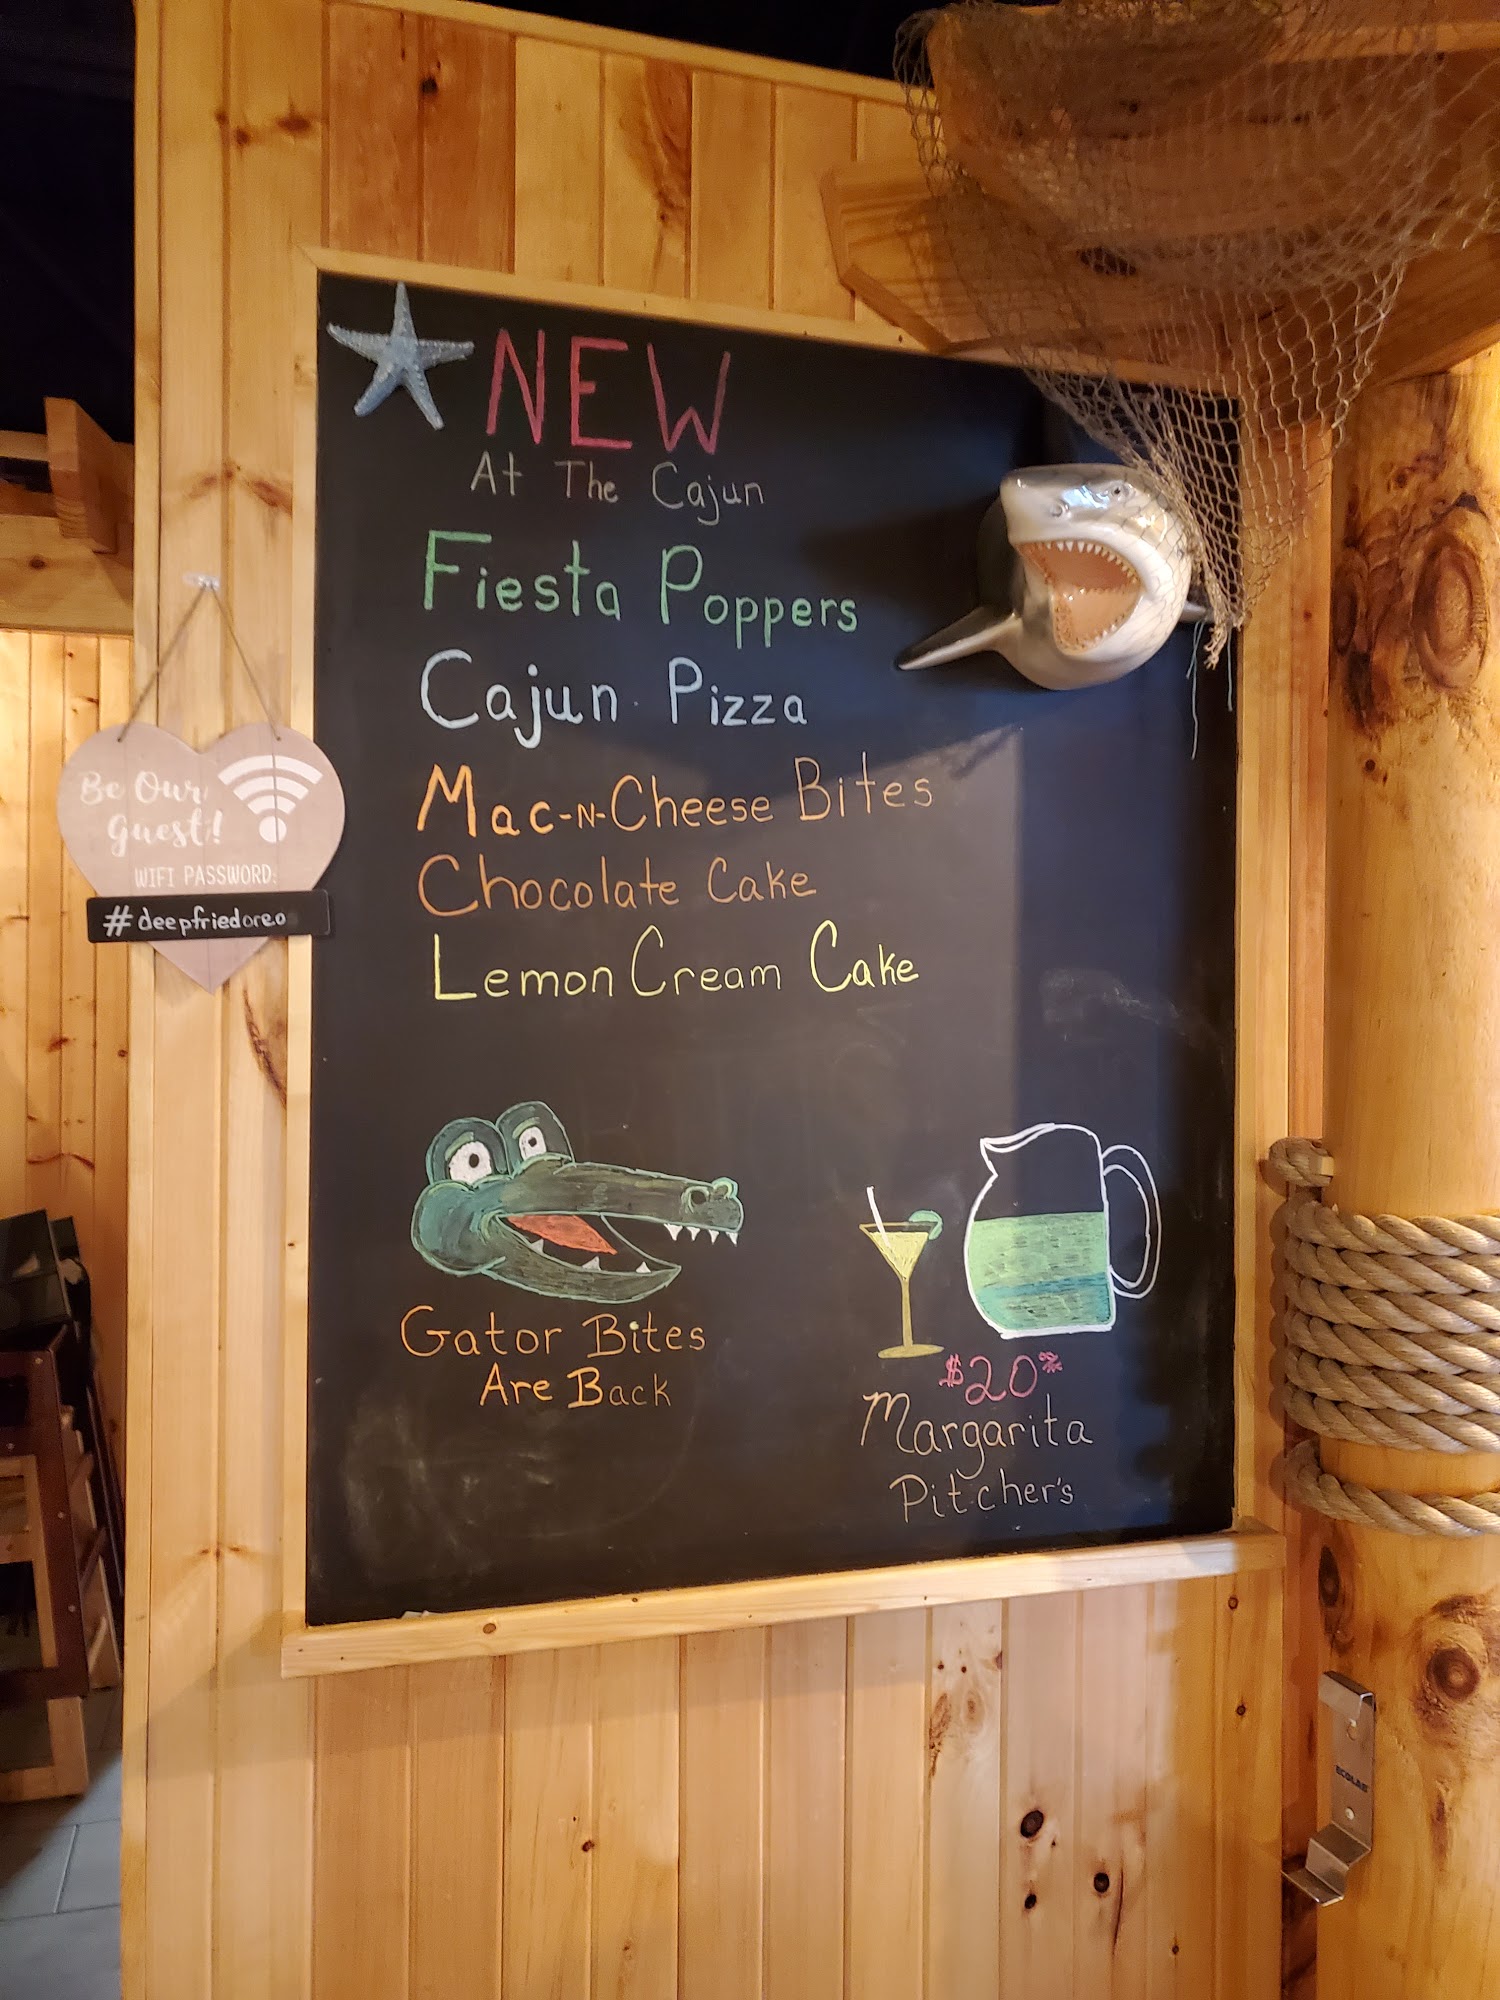 NEW
At The Cajun
Fiesta Poppers
Cajun Pizza
Mac-N-Cheese Bites
Chocolate Cake
Lemon Cream Cake
Gator Bites
Are Back
$20
Margarita
Pitcher's
Be Our
Guest!
WIFI PASSWORD:
#deepfriedoreo
ECOLAB